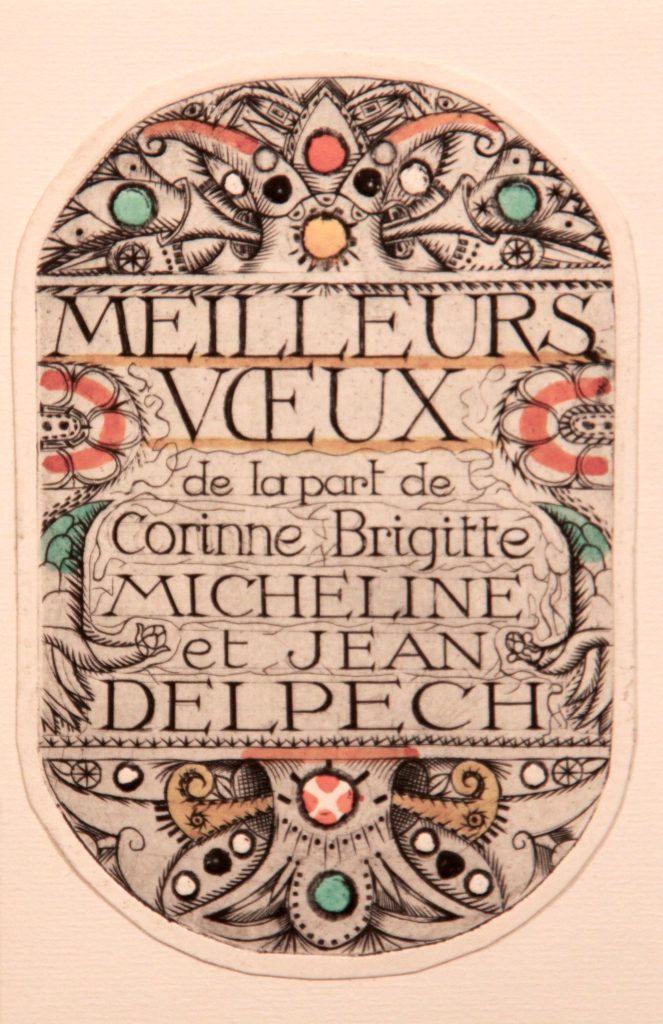 MEILLEURS
VŒUX
de la part de
Corinne Brigitte
MICHELINE
et JEAN
DELPECH